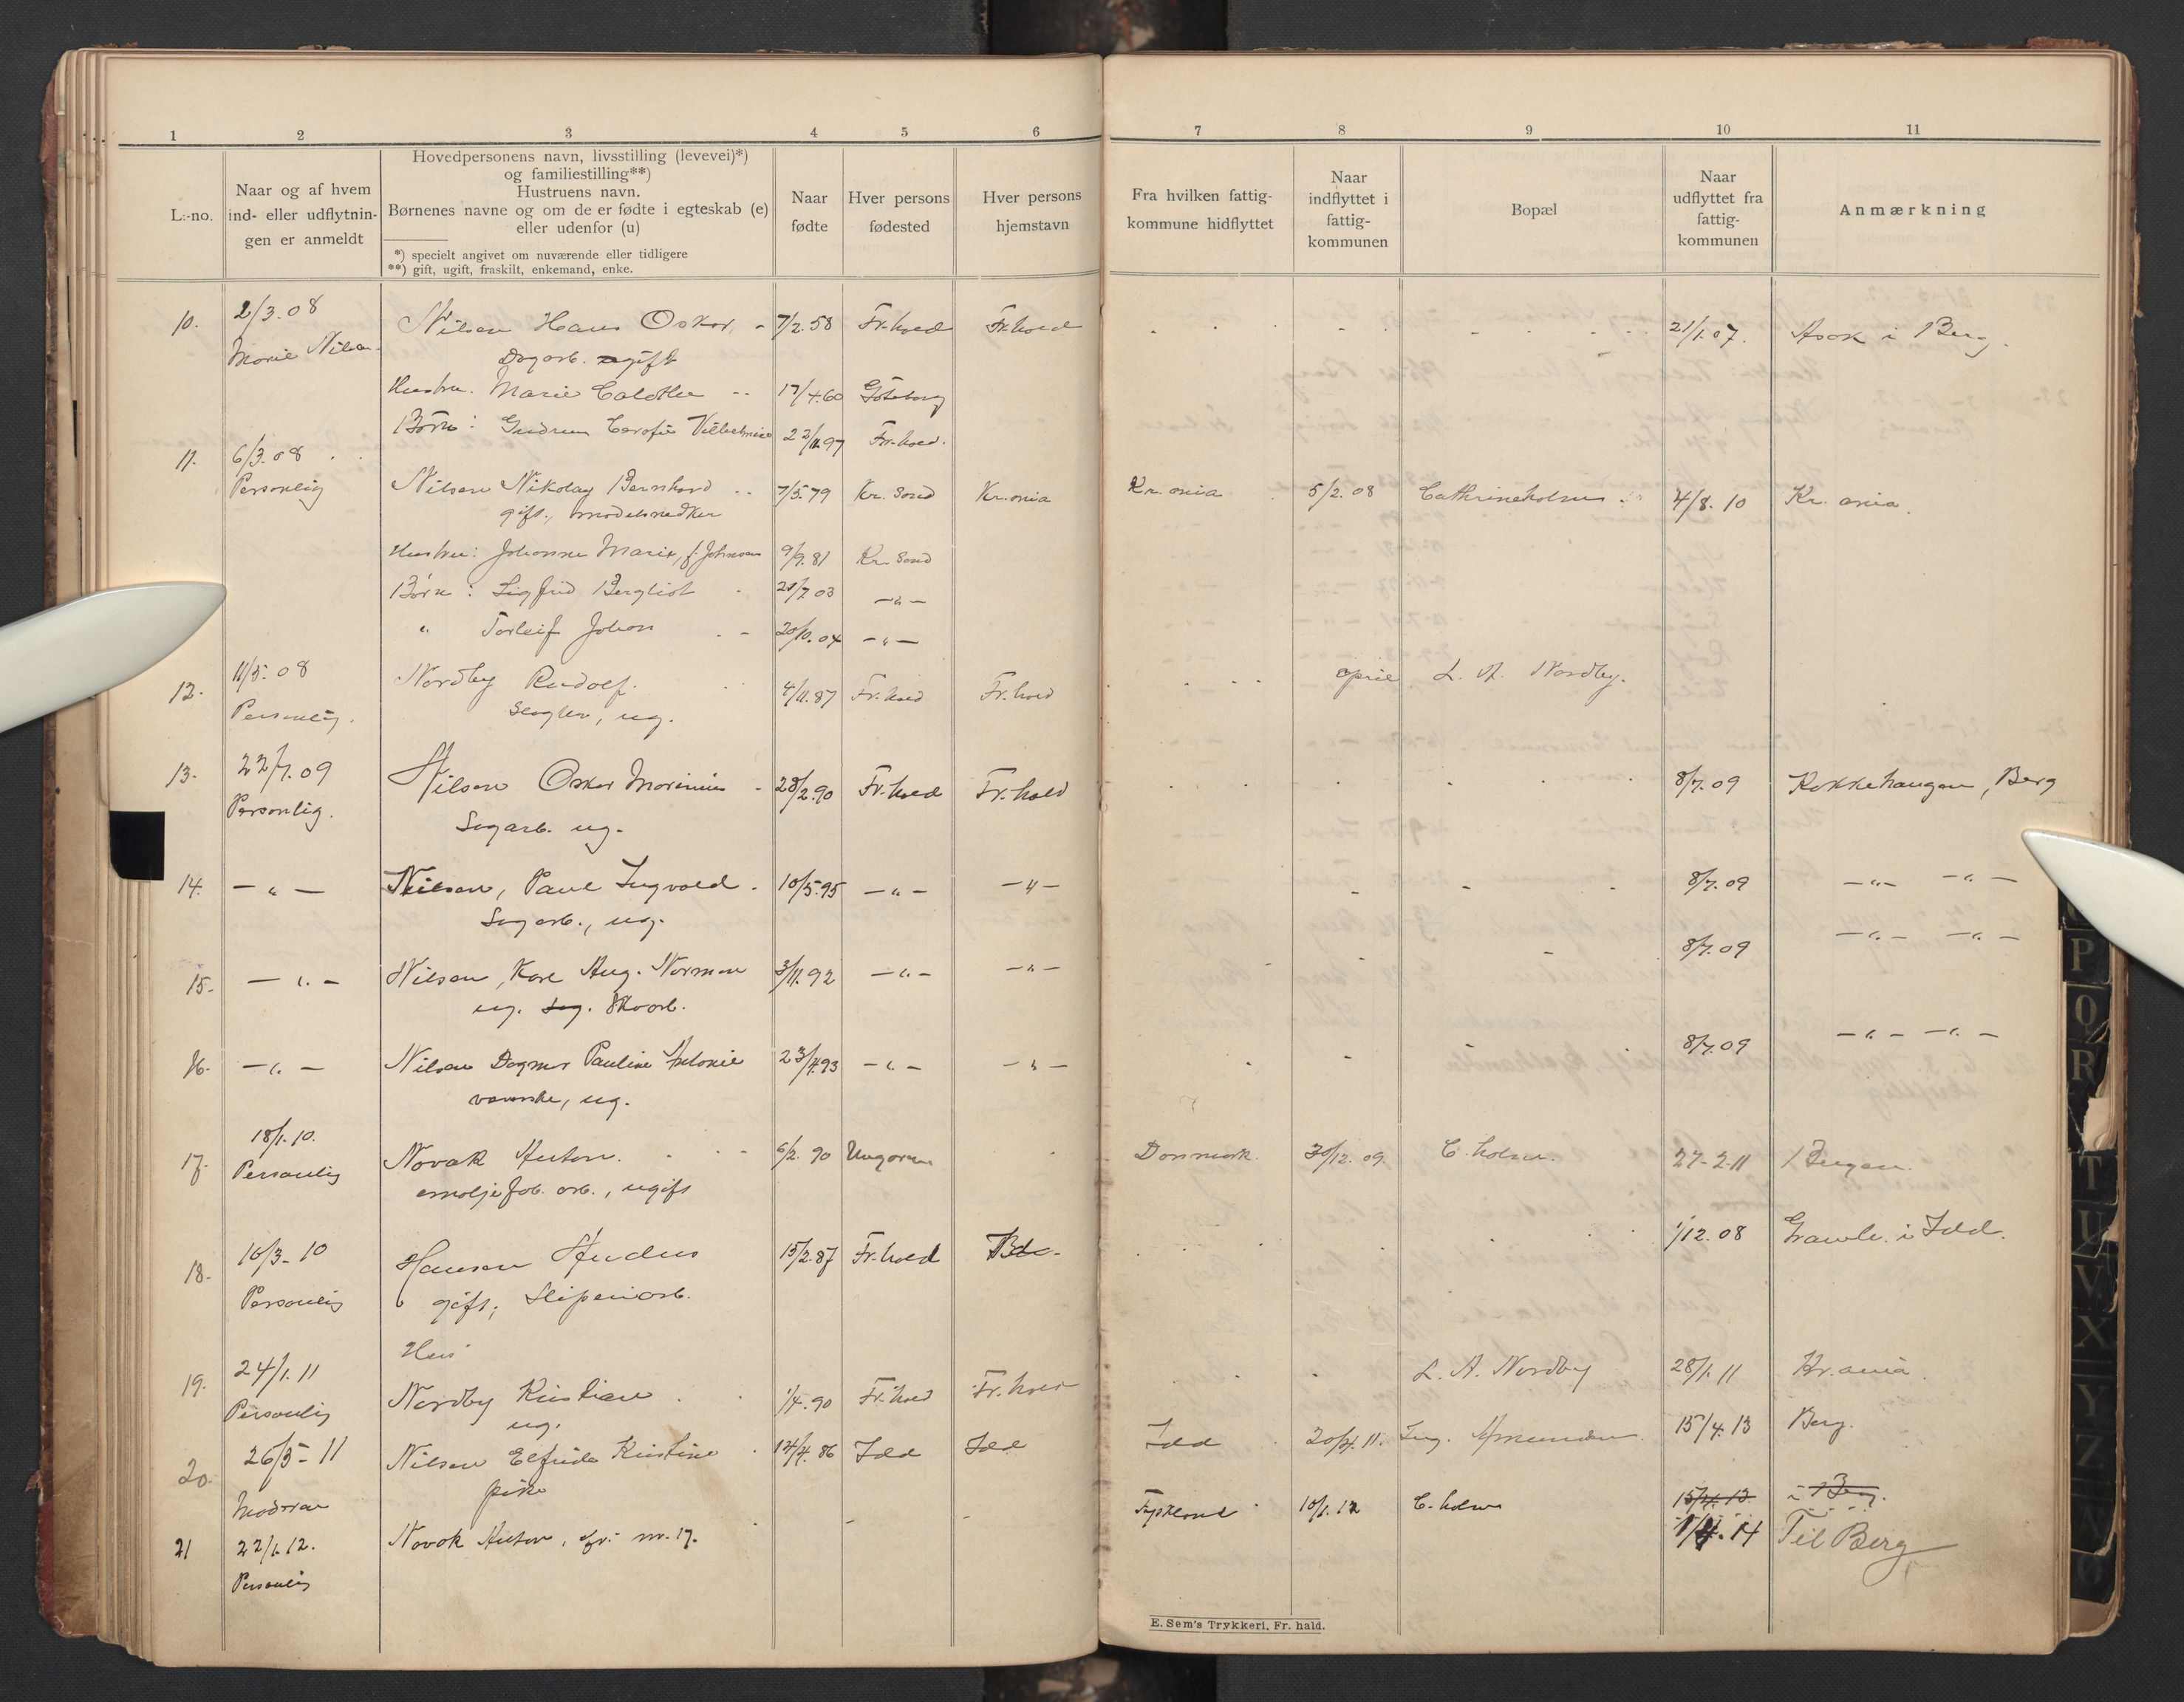 1 2 3 4 5 6 7 8 9 10 11
L.-no.
Naar og af hvem
ind- eller udflytnin-
gen er anmeldt
Hovedpersonens navn, livsstilling (levevei)*)
og familiestilling**)
Hustruens navn.
Børnenes navne og om de er fødte i egteskab (e)
eller udenfor (u)
*) specielt angivet om nuværende eller tidligere
**) gift, ugift, fraskilt, enkemand, enke.
Naar
fødte
Hver persons
fødested
Hver persons
hjemstavn
Fra hvilken fattig-
kommune hidflyttet
Naar
indflyttet i
fattig-
kommunen
Bopæl
Naar
udflyttet fra
fattig-
kommunen
Anmærkning
10. 2/3.08 Nilsen Hans Oskar 7/2.58 Fr.hald Fr.hald 21/1.07. Asak i Berg.
Marie Nilsen Dagarb. gift
Hustru. Marie 17/4.60 Göteborg
Børn: Gudrun Vilhelmine 22/11.97 Fr.hald.
11. 6/3.08
Personlig Nilsen Nikolay Bernhard 7/5.79 Kr.sand Kr.ania Kr.ania 5/2.08 Cathrineholm 4/8.10 Kr.ania.
gift, modelsnedker
Hustru: Johanne Marie, f. Johnsen 9/9.81 Kr.sand
Børn: Sigfrid Bergliot 21/7.03 -"-
" Torleif Johan 20/10.04 -"-
12. 11/5.08 Nordby Rudolf. 4/11.87 Fr.hald Fr.hald april L. A. Nordby.
Personlig. Slagter, ug.
13. 22/7.09 Nilsen Oskar Marinius 28/2.90 Fr.hald Fr.hald 8/7.09 Kokkehaugen, Berg
Personlig. Sagarb. ug.
14. -"- Nilsen, Paul Ingvald. 10/5.95 -"- -"- 8/7.09 -"- -"-
Sagarb., ug.
15. -"- Nilsen, Karl Aug. Norman 3/11.92 -"- -"- 8/7.09 -"- -"-
ug. Sag. Skoarb.
16. -"- Nilsen Dagmar Pauline Antonie 23/4.93 -"- -"- 8/7.09 -"- -"-
ug.
17. 18/1.10. Novak Anton. 6/2.90 Ungarn Danmark. 30/12.09 C.holm. 27-2-11 Bergen.
Personlig emaljefab. arb., ugift
18. 16/3-10 Hansen 15/2.87 Fr.hald 1/12.08 i Idd.
Personlig gift, Sliperiarb.
Hus
19. 24/1.11 Nordby Kristian 1/4.90 Fr.hald Fr.hald L. A. Nordby 28/1.11 Kr.ania.
Personlig ug.
20. 26/5-11 Nilsen Elfrida Kristine 14/4.86 Idd Idd Idd 20/4.11. Ing. Amundsen 15/4.13 Berg.
Madran pike
21 22/1.12. Novak Anton, cfr. nr. 17. Tyskland 10/1.12 C.holm 15/4.13. i Berg.
Personlig 1/4.14 Til Berg
E. Sem's Trykkeri, Fr. hald.
P
Q
R
T
U
V
X
Y
Z